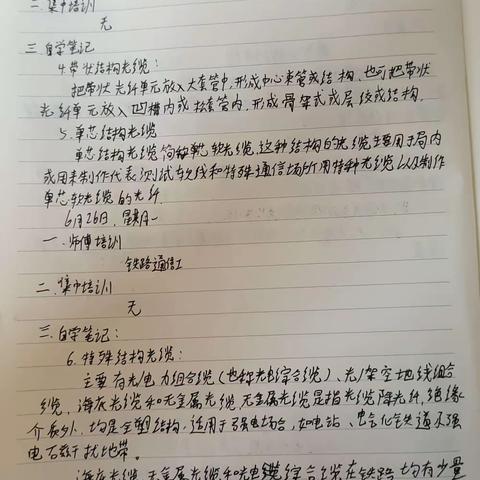 二. 集中培训
无
三. 自学笔记
4. 带状结构光缆：
把带状光纤单元放入大套管中，形成中心束管式结构，也可把带状
光纤单元放入凹槽内或松套管内，形成骨架式或层绞式结构。
5. 单芯结构光缆
单芯结构光缆简称单芯软光缆，这种结构的光缆主要用于局内
或用来制作仪表测试软线和特殊通信场所用特种光缆以及制作
单芯软光缆的光纤
6月26日，星期一
一. 师傅培训
铁路通信工
二. 集中培训
无
三. 自学笔记：
6. 特殊结构光缆：
主要有光/电力组合缆（也称光电综合缆）、光/架空地线组合
缆，海底光缆和无金属光缆，无金属光缆是指光缆除光纤，绝缘
介质外，均是全塑结构，适用于强电场合，如电站、电气化铁道不强
电干扰地带。
海底光缆、无金属光缆和光电综合缆在铁路均有少量